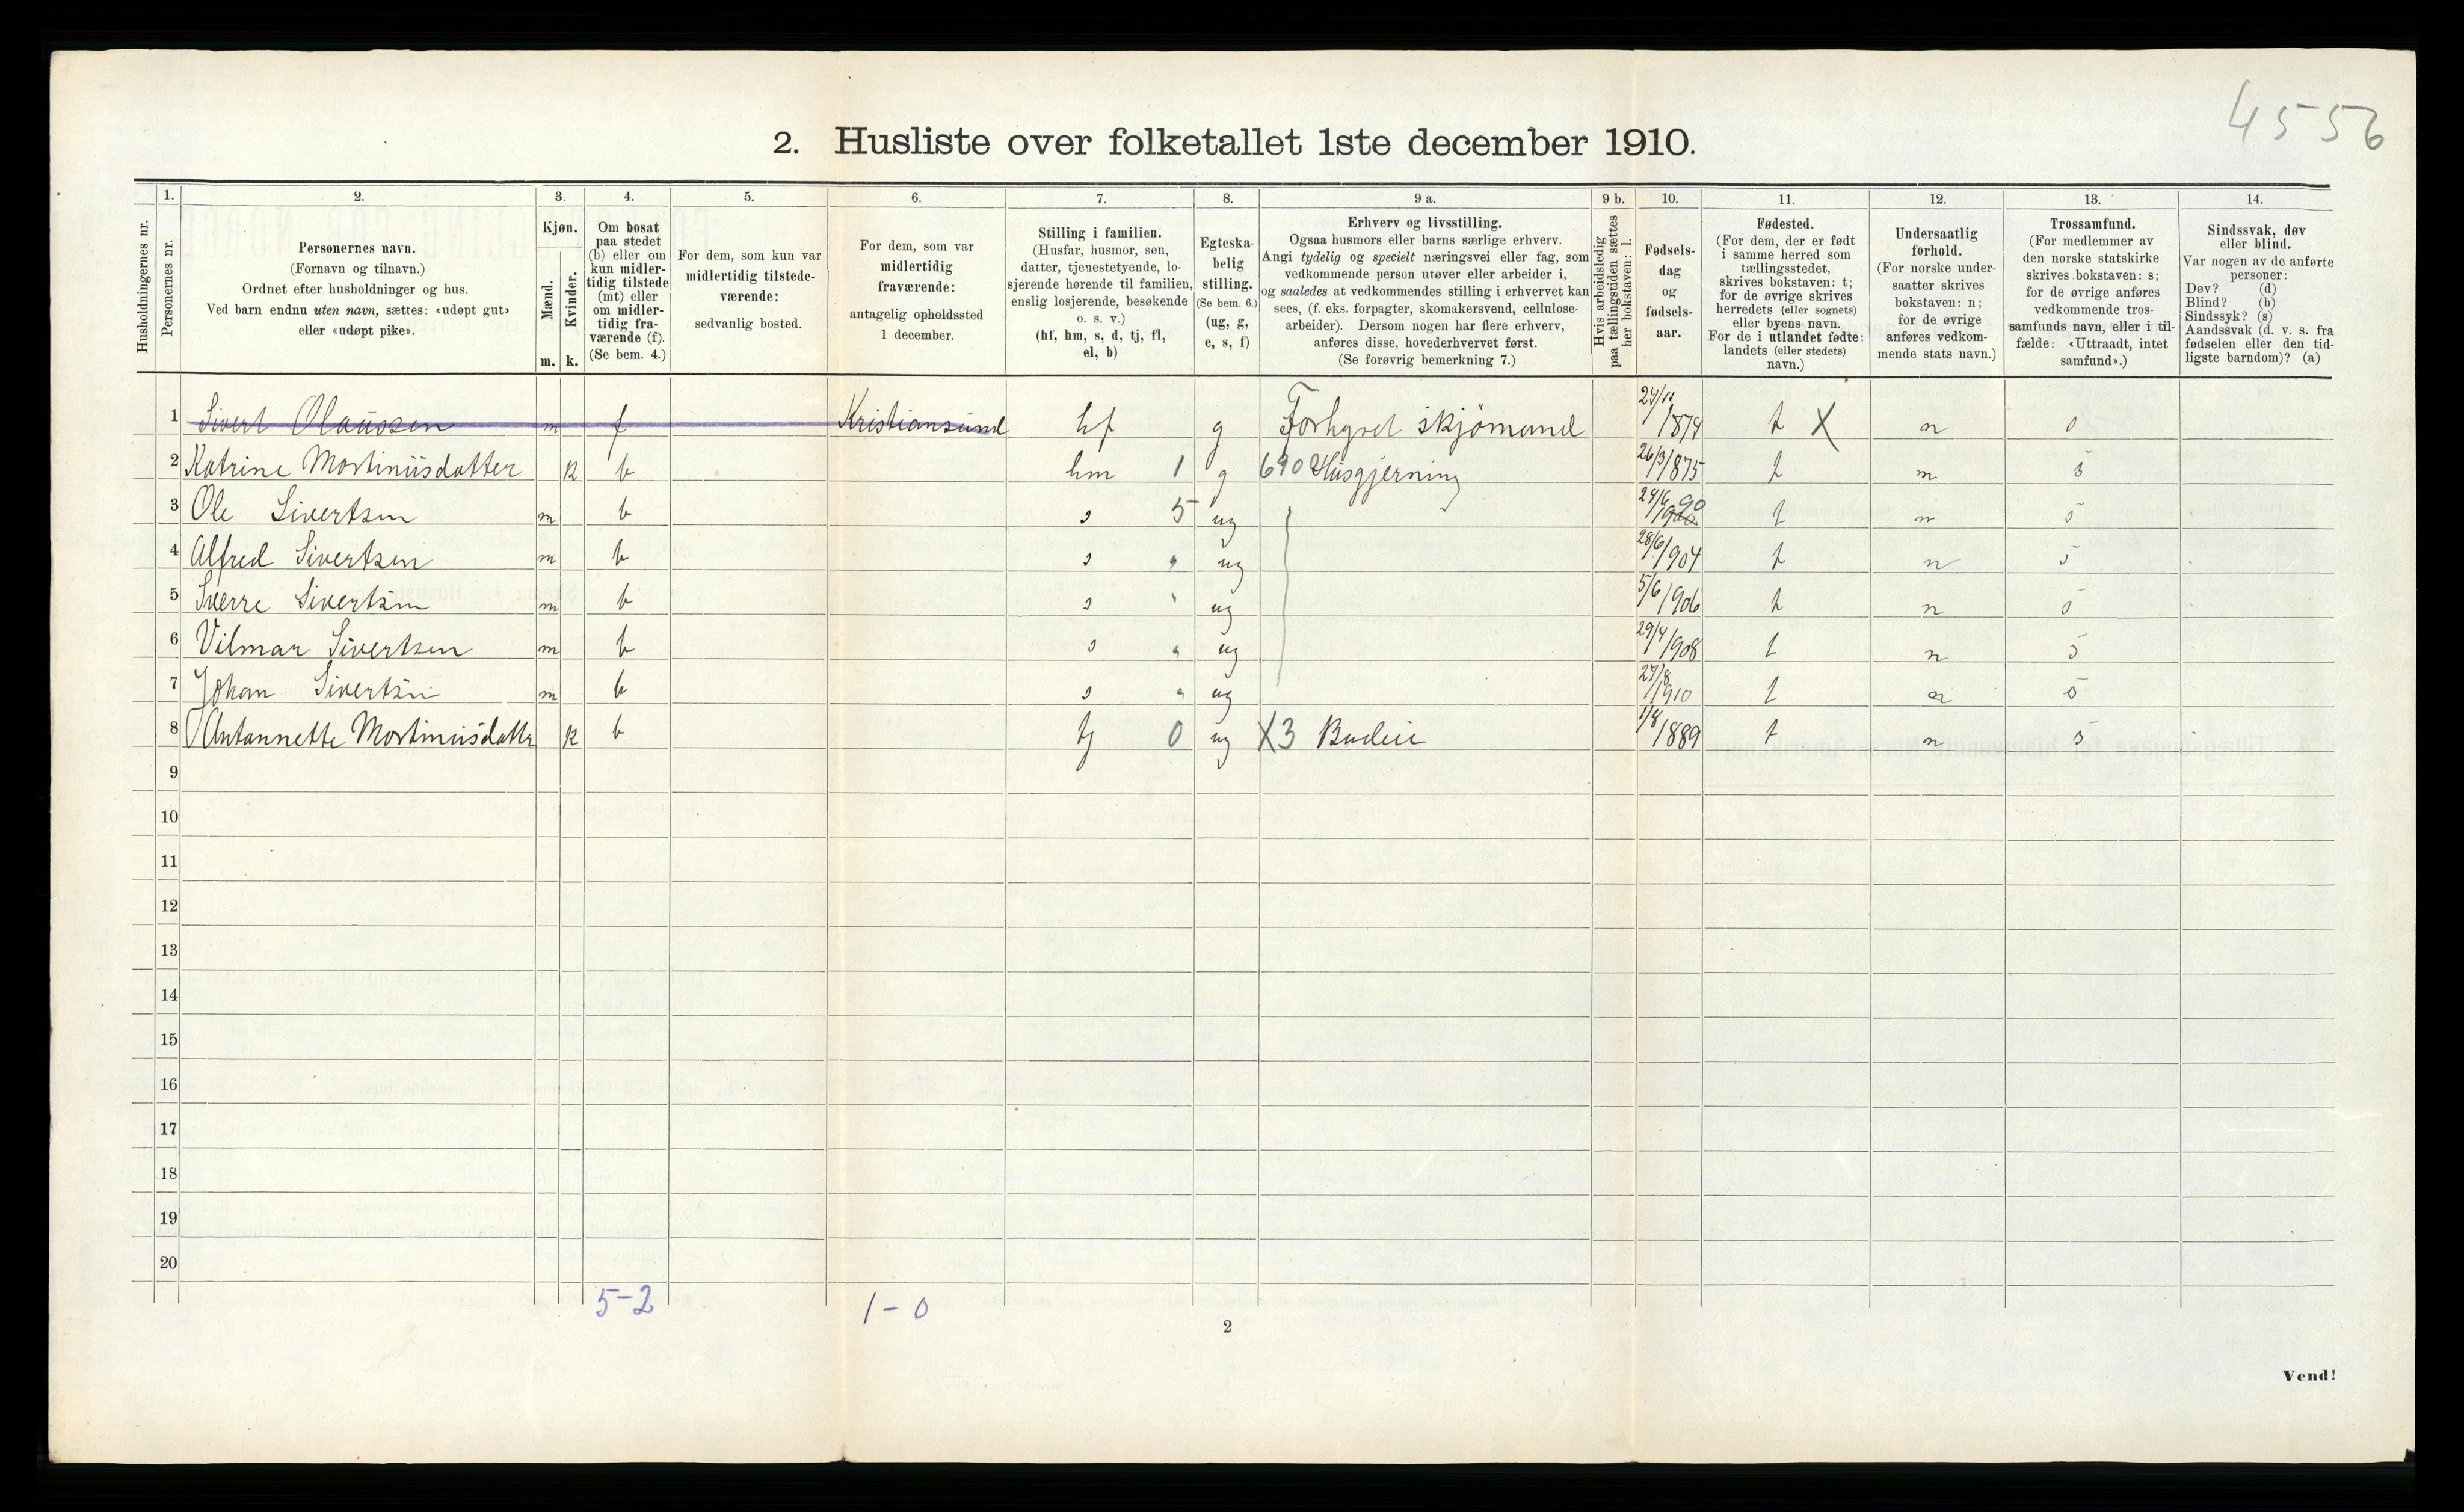 4556
2. Husliste over folketallet 1ste december 1910.
1. 2. 3. 4. 5. 6. 7. 8. 9 a. 9 b. 10. 11. 12. 13. 14.
Husholdningernes nr.
Personernes nr.
Personernes navn.
(Fornavn og tilnavn.)
Ordnet efter husholdninger og hus.
Ved barn endnu uten navn, sættes: «udøpt gut»
eller «udøpt pike».
Kjøn.
Mænd.
Kvinder.
m. k.
Om bosat
paa stedet
(b) eller om
kun midler-
tidig tilstede
(mt) eller
om midler-
tidig fra-
værende (f).
(Se bem. 4.)
For dem, som kun var
midlertidig tilstede-
værende:
sedvanlig bosted.
For dem, som var
midlertidig
fraværende:
antagelig opholdssted
1 december.
Stilling i familien.
(Husfar, husmor, søn,
datter, tjenestetyende, lo-
sjerende hørende til familien,
enslig losjerende, besøkende
o. s. v.)
(hf, hm, s, d, tj, fl,
el, b)
Egteska-
belig
stilling.
(Se bem. 6.)
(ug, g,
e, s, f)
Erhverv og livsstilling.
Ogsaa husmors eller barns særlige erhverv.
Angi tydelig og specielt næringsvei eller fag, som
vedkommende person utøver eller arbeider i,
og saaledes at vedkommendes stilling i erhvervet kan
sees, (f. eks. forpagter, skomakersvend, cellulose-
arbeider). Dersom nogen har flere erhverv,
anføres disse, hovederhvervet først.
(Se forøvrig bemerkning 7.)
Hvis arbeidsledig
paa tællingstiden sættes
her bokstaven: l.
Fødsels-
dag
og
fødsels-
aar.
Fødested.
(For dem, der er født
i samme herred som
tællingsstedet,
skrives bokstaven: t;
for de øvrige skrives
herredets (eller sognets)
eller byens navn.
For de i utlandet fødte:
landets (eller stedets)
navn.)
Undersaatlig
forhold.
(For norske under-
saatter skrives
bokstaven: n;
for de øvrige
anføres vedkom-
mende stats navn.)
Trossamfund.
(For medlemmer av
den norske statskirke
skrives bokstaven: s;
for de øvrige anføres
vedkommende tros-
samfunds navn, eller i til-
fælde: «Uttraadt, intet
samfund».)
Sindssvak, døv
eller blind.
Var nogen av de anførte
personer:
Døv? (d)
Blind? (b)
Sindssyk? (s)
Aandssvak (d. v. s. fra
fødselen eller den tid-
ligste barndom)? (a)
1 Sivert Olaussen m f Kristiansund hf g Forhyret skjömand 1874 t X n s
2 Katrine Mortinusdatter k b hm 1 g 690 Husgjerning 26/3/875 t n s
3 Ole Sivertsen m b s 5 ug 24/6 1900 90 t n s
4 Alfred Sivertsen m b s " ug 28/6/904 t n s
5 Sverre Sivertsen m b s " ug 5/6/906 t n s
6 Vilmar Sivertsen m b s " ug 29/4/908 t n s
7 Johan Sivertsen m b s " ug 27/8/910 t n s
8 Antannette Mortinusdatter k b tj 0 ug X3 Budeie 1/8/1889 t n s
9
10
11
12
13
14
15
16
17
18
19
20
5-2 1-0
2
Vend!